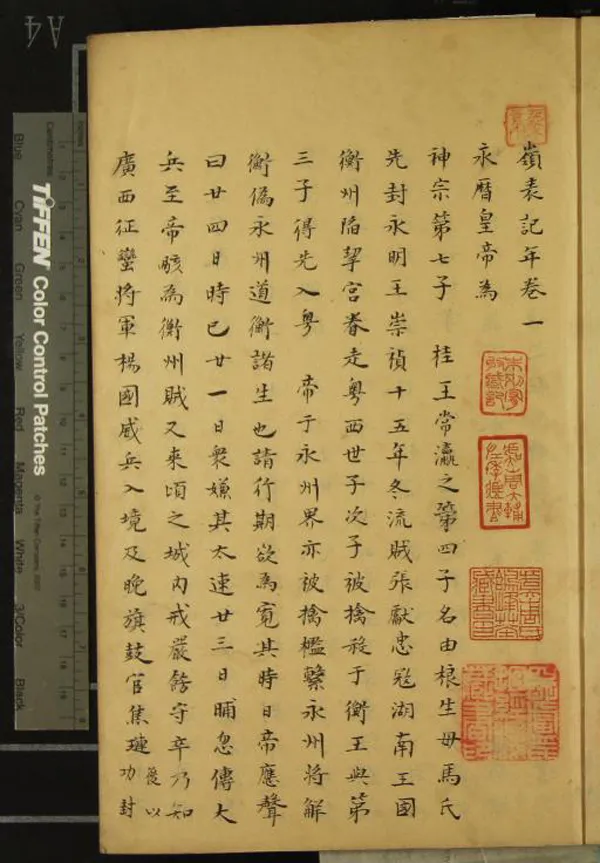 嶺表記年卷一
永曆皇帝為
神宗第七子 桂王常瀛之第四子名由榔生母馬氏
先封永明王崇禎十五年冬流賊張獻忠寇湖南王國
衡州陷挈宮眷走粵西世子次子被擒殺于衡王與第
三子得先入粵 帝于永州界亦被擒檻繫永州將解
衡僞永州道衡諸生也請行期欲為寬其時日帝應聲
曰廿四日時已廿一日衆嫌其太速廿三日晡忽傳大
兵至帝駭為衡州賊又來頃之城內戒嚴飭守卒乃知
廣西征蠻將軍楊國威兵入境及晚旗鼓官焦璉後以功封
A4
TIFFEN Color Control Patches
Centimetres
Blue Cyan Green Yellow Red Magenta White 3/Color Black